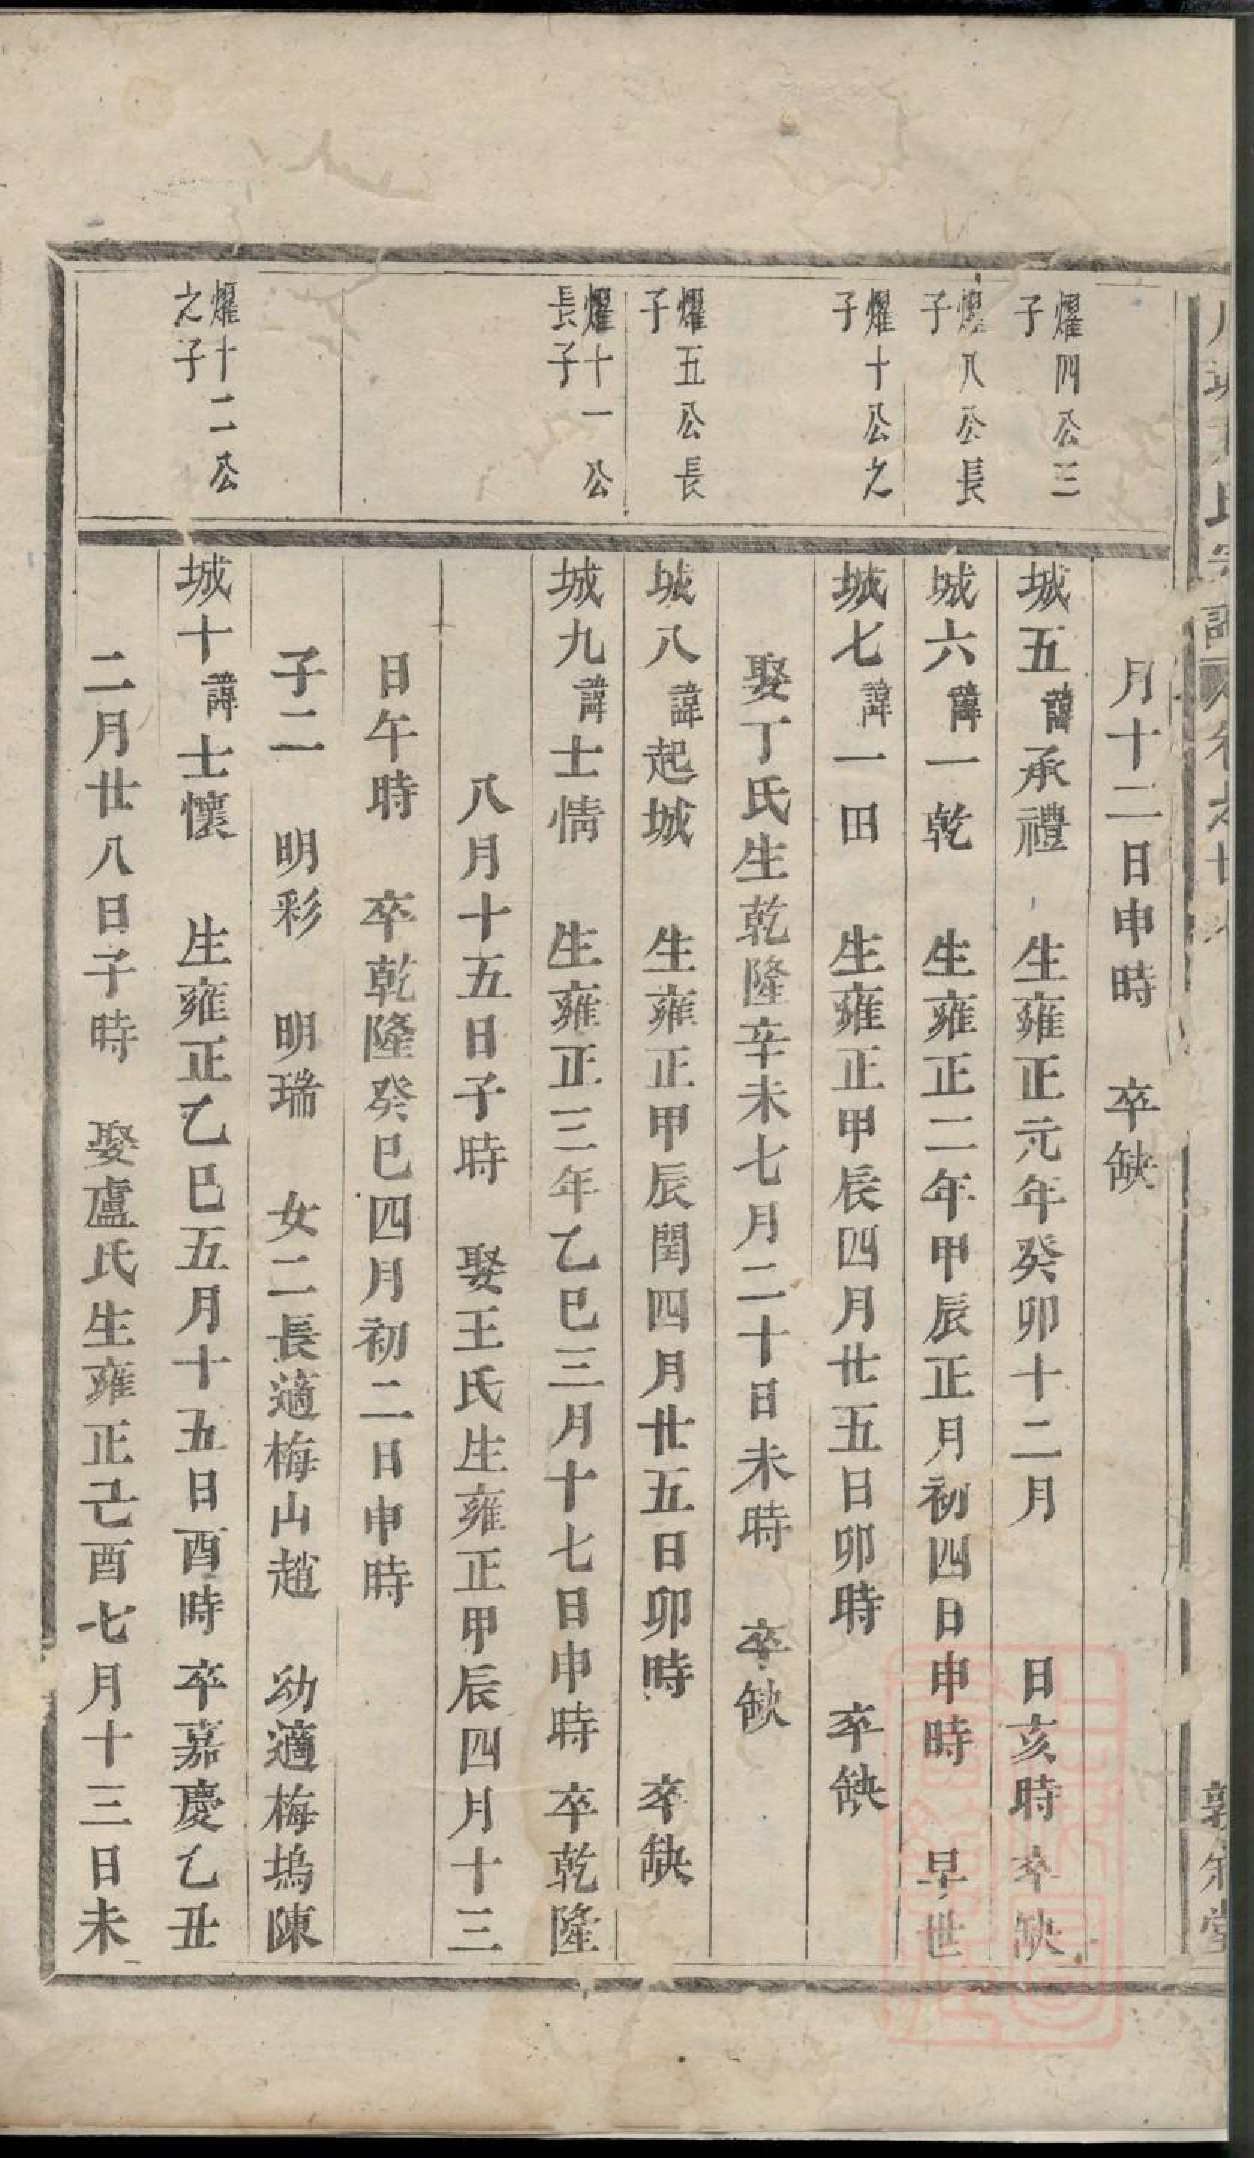 月十二日申時　卒缺
燿四公三
子
城五諱承禮　生雍正元年癸卯十二月　　日亥時卒缺
燿八公長
子
城六諱一乾　生雍正二年甲辰正月初四日申時　早世
燿十公之
子
城七諱一田　生雍正甲辰四月廿五日卯時　卒缺
娶丁氏生乾隆辛未七月二十日未時　卒缺
燿五公長
子
城八諱起城　生雍正甲辰閏四月廿五日卯時　卒缺
燿十一公
長子
城九諱士情　生雍正三年乙巳三月十七日申時　卒乾隆
八月十五日子時　娶王氏生雍正甲辰四月十三
日午時　卒乾隆癸巳四月初二日申時
子二　明彩　明瑞　女二長適梅山趙　幼適梅塢陳
燿十二公
之子
城十諱士懷　生雍正乙巳五月十五日酉時　卒嘉慶乙丑
二月廿八日子時　娶盧氏生雍正己酉七月十三日未